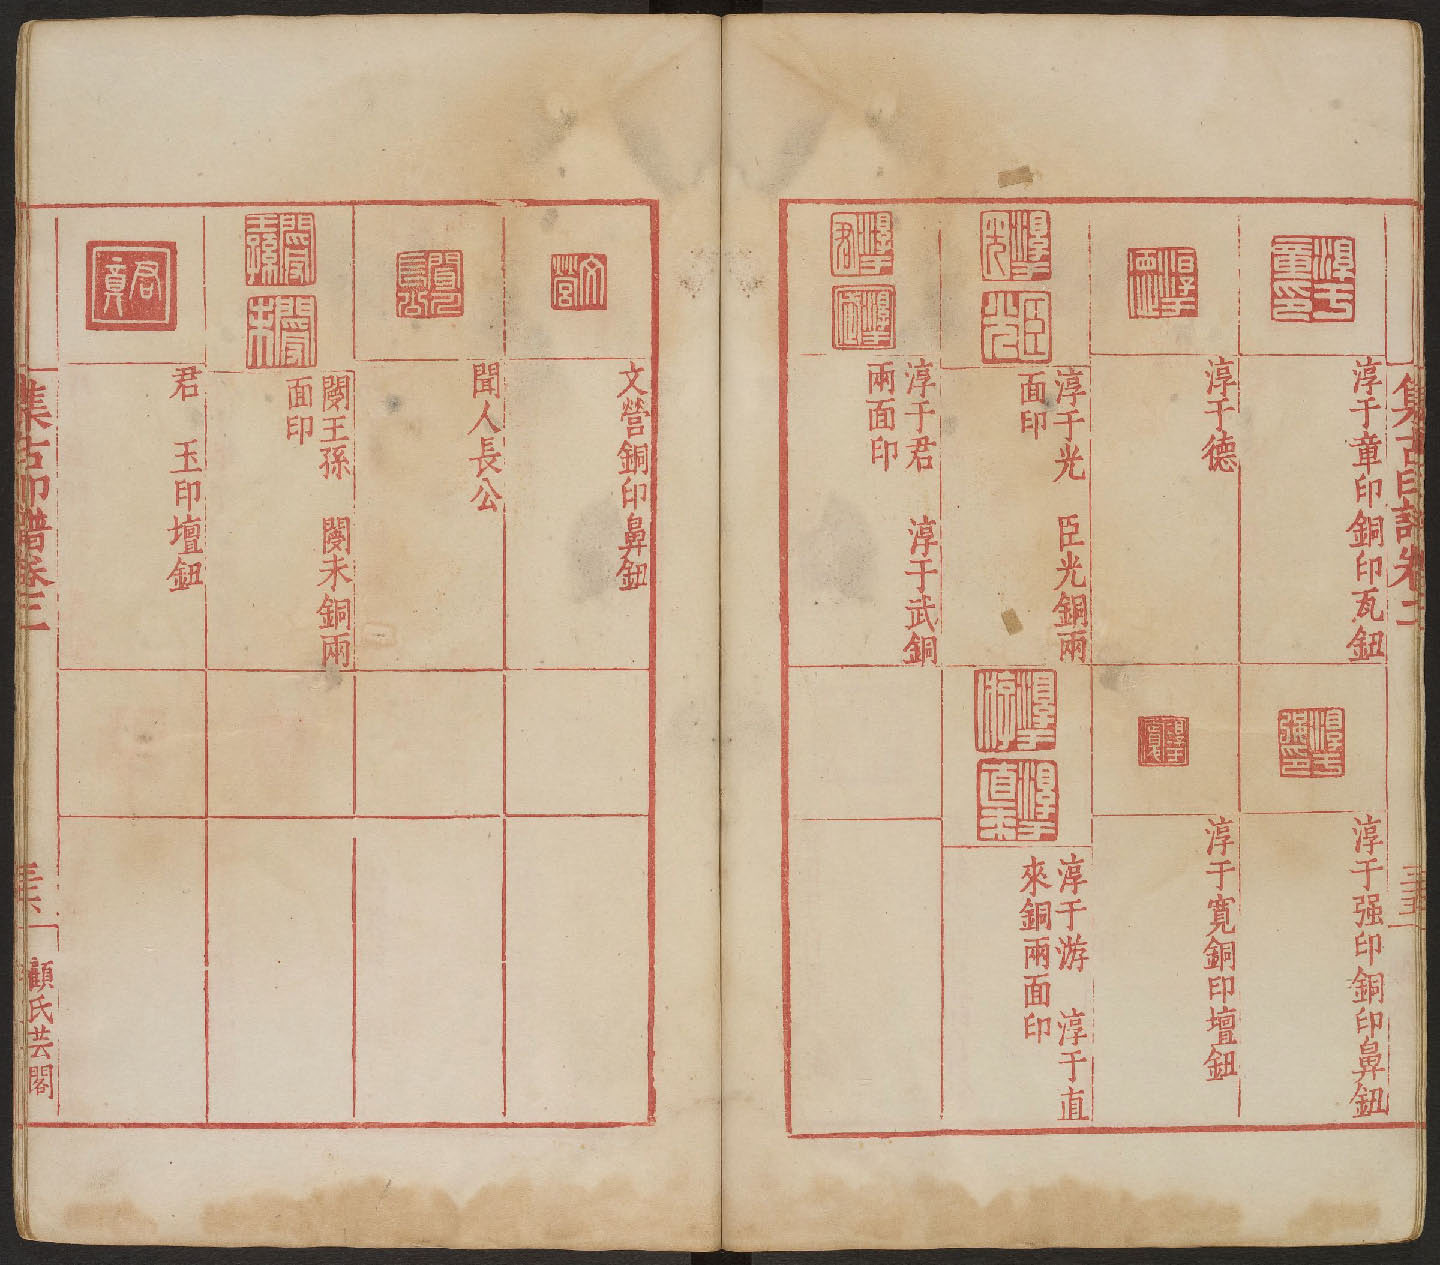 集古印譜卷三
淳于章印銅印瓦鈕
淳于德
淳于光　臣光銅兩
面印
淳于君　淳于武銅
兩面印
淳于强印銅印鼻鈕
淳于寬銅印壇鈕
淳于游　淳于直
來銅兩面印
文營銅印鼻鈕
聞人長公
閿王孫　閿未銅兩
面印
君　玉印壇鈕
集古印譜卷三
顧氏芸閣